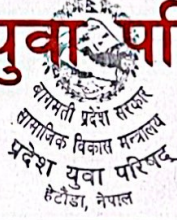 युवा परि
बागमती प्रदेश सरकार
सामाजिक विकास मन्त्रालय
प्रदेश युवा परिषद्
हेटौंडा, नेपाल